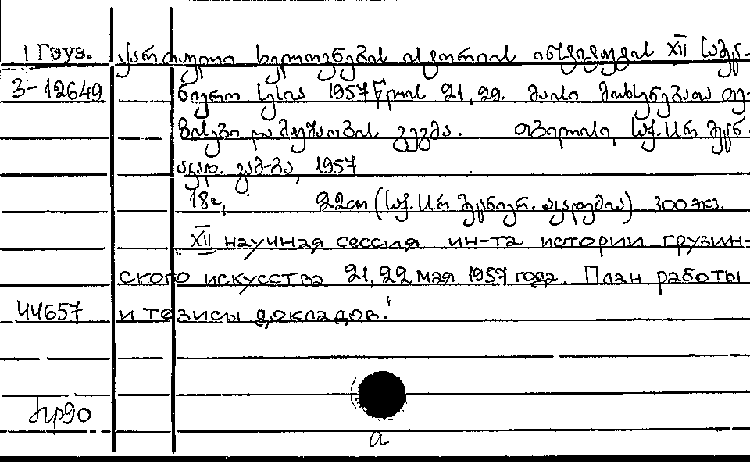 1 Груз. ქართული ხელოვნების ისტორიის ინსტიტუტის XII სამეც-
3-12649 ნიერო სესია 1957 წლის 21, 22. მაისი მოხსენებათა თე-
ზისები და მუშაობის გეგმა. თბილისი, საქ. სსრ მეცნ.
აკად. გამ-ბა, 1957
18გ, 22სმ (საქ. სსრ მეცნიერ. აკადემია) 300 ეგზ.
XII научная сессия ин-та истории грузин-
ского искусства 21, 22 мая 1957 года. План работы
44657 и тезисы докладов.
а